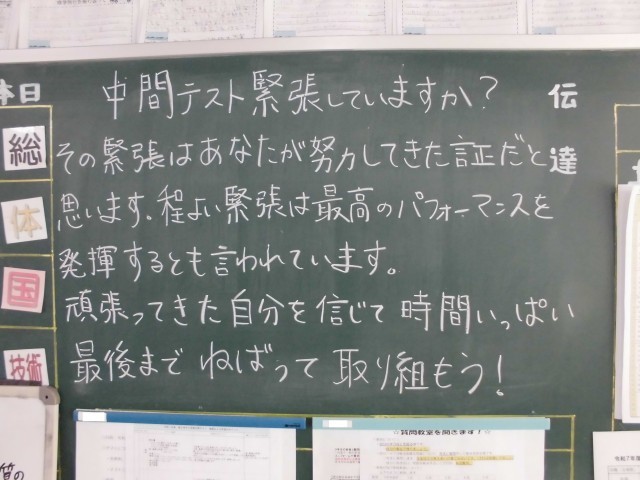 本日
中間テスト緊張していますか?
その緊張はあなたが努力してきた証だと
思います。程よい緊張は最高のパフォーマンスを
発揮するとも言われています。
頑張ってきた自分を信じて 時間いっぱい
最後まで ねばって 取り組もう!
伝達
総
体
国
技術
質問教室を開きます!☆
質の
令和7年度